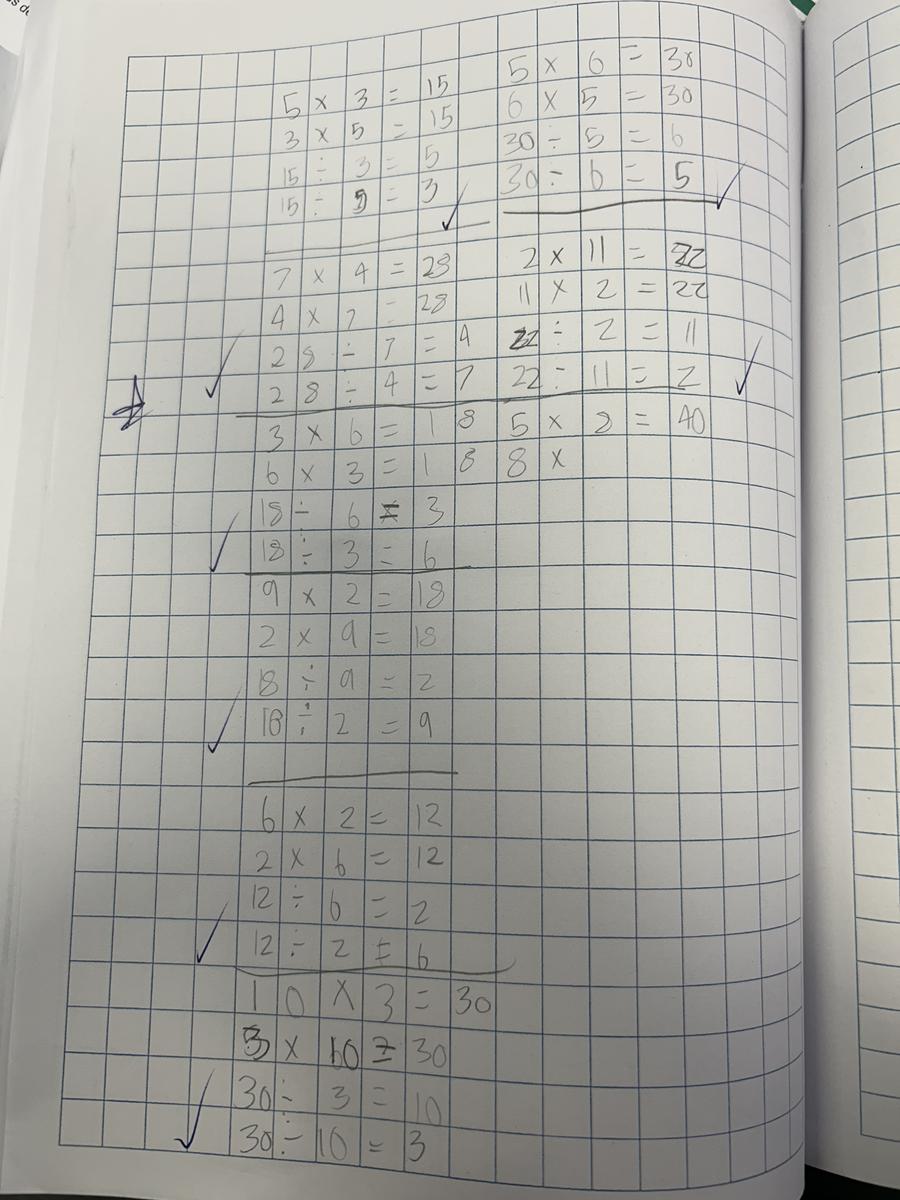 5 × 3 = 15
3 × 5 = 15
15 ÷ 3 = 5
15 ÷ 5 = 3
7 × 4 = 28
4 × 7 = 28
28 ÷ 7 = 4
28 ÷ 4 = 7
3 × 6 = 18
6 × 3 = 18
18 ÷ 6 = 3
18 ÷ 3 = 6
9 × 2 = 18
2 × 9 = 18
18 ÷ 9 = 2
18 ÷ 2 = 9
6 × 2 = 12
2 × 6 = 12
12 ÷ 6 = 2
12 ÷ 2 = 6
10 × 3 = 30
3 × 10 = 30
30 ÷ 3 = 10
30 ÷ 10 = 3
5 × 6 = 30
6 × 5 = 30
30 ÷ 5 = 6
30 ÷ 6 = 5
2 × 11 = 22
11 × 2 = 22
22 ÷ 2 = 11
22 ÷ 11 = 2
5 × 8 = 40
8 ×